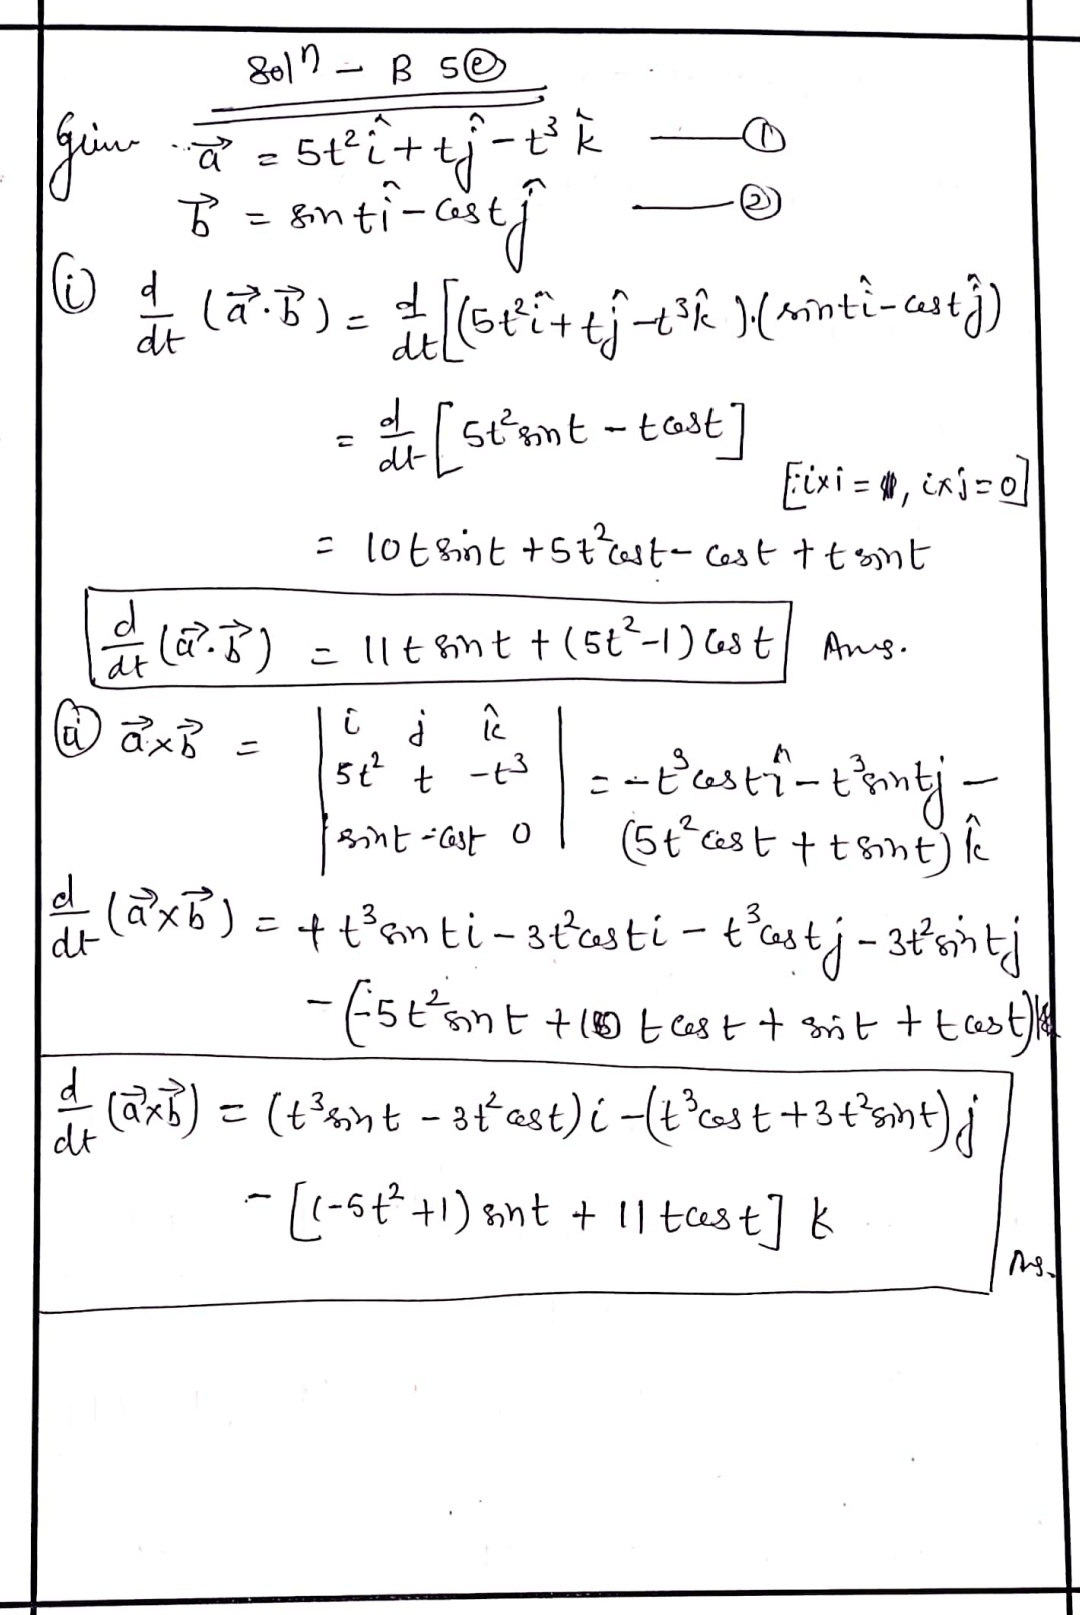 Solⁿ - B 5ⓔ
Given a⃗ = 5t²î + tĵ - t³ k̂ —— ①
b⃗ = sint î - cost ĵ —— ②
ⓘ d/dt (a⃗.b⃗) = d/dt [(5t²î + tĵ - t³k̂).(sint î - cost ĵ)
= d/dt [5t²sint - tcost]
[∵ i×i = 1, i×j = 0]
= 10t sint + 5t²cost - cost + t sint
d/dt (a⃗.b⃗) = 11t sint + (5t²-1) cost Ans.
ⓘⓘ a⃗×b⃗ = | i j k̂ |
| 5t² t -t³ | = -t³cost î - t³sint j -
| sint -cost 0 | (5t²cost + tsint) k̂
d/dt (a⃗×b⃗) = + t³sint i - 3t²cost i - t³cost j - 3t²sint j
- (-5t²sint + 10 t cost + sint + t cost)k
d/dt (a⃗×b⃗) = (t³sint - 3t²cost) i - (t³cost + 3t²sint) j
- [(-5t²+1) sint + 11 tcost] k
Ans.